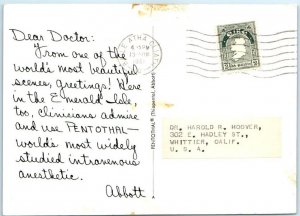 Dear Doctor:
From one of the
world's most beautiful
scenes, greetings! Here
in the Emerald Isle,
too, clinicians admire
and use PENTOTHAL—
world's most widely
studied intravenous
anesthetic.
Abbott
PENTOTHAL® (Thiopental, Abbott)
DR. HAROLD R. HOOVER,
302 E. HADLEY ST.,
WHITTIER, CALIF.
U. S. A.